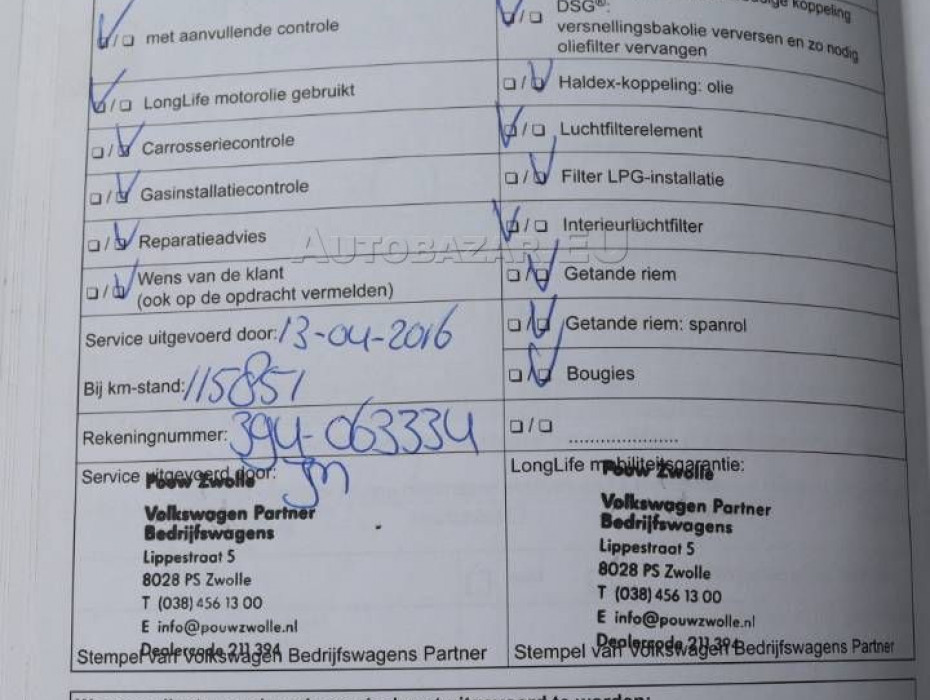 met aanvullende controle
LongLife motorolie gebruikt
Carrosseriecontrole
Gasinstallatiecontrole
Reparatieadvies
Wens van de klant
(ook op de opdracht vermelden)
Service uitgevoerd door: 13-04-2016
Bij km-stand: 115851
Rekeningnummer: 394-063334
Service uitgevoerd door:
Pouw Zwolle
Volkswagen Partner
Bedrijfswagens
Lippestraat 5
8028 PS Zwolle
T (038) 456 13 00
E info@pouwzwolle.nl
Dealercode 211 394
Stempel van Volkswagen Bedrijfswagens Partner
koppeling
DSG®:
versnellingsbakolie verversen en zo nodig
oliefilter vervangen
Haldex-koppeling: olie
Luchtfilterelement
Filter LPG-installatie
Interieurluchtfilter
Getande riem
Getande riem: spanrol
Bougies
LongLife mobiliteitsgarantie:
Pouw Zwolle
Volkswagen Partner
Bedrijfswagens
Lippestraat 5
8028 PS Zwolle
T (038) 456 13 00
E info@pouwzwolle.nl
Dealercode 211 394
Stempel van Volkswagen Bedrijfswagens Partner
AUTOBAZAR.EU